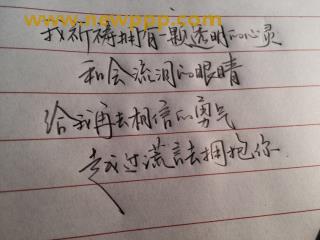 www.newppp.com
我祈祷拥有一颗透明的心灵
和会流泪的眼睛
给我再去相信的勇气
越过谎言去拥抱你